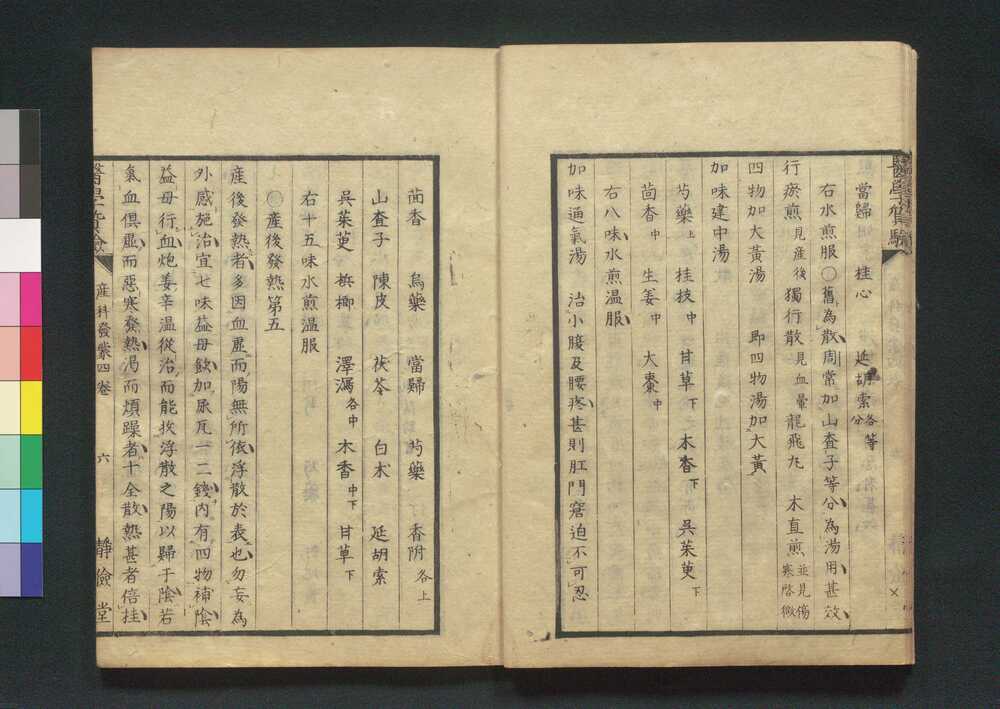 當歸　桂心　延胡索各等分
右水煎服〇舊為散周常加山査子等分為湯用甚效
行瘀煎見産後　獨行散見血暈　龍飛丸　木直煎並見傷寒啓微
四物加大黃湯　即四物湯加大黃
加味建中湯
芍藥上　桂枝中　甘草下　木香下　呉茱萸下
茴香中　生姜中　大棗中
右八味水煎温服
加味通氣湯　治小腹及腰疼甚則肛門窘迫不可忍
茴香　烏藥　當歸　芍藥　香附各上
山査子　陳皮　茯苓　白朮　延胡索
呉茱萸　檳榔　澤瀉各中　木香中下　甘草下
右十五味水煎温服
〇産後發熱第五
産後發熱者多因血虛而陽無所依浮散於表也勿妄為
外感施治宜七味益母飲加尿瓦一二錢内有四物補陰
益母行血炮姜辛温從治而能挍浮散之陽以歸于陰若
氣血倶虛而惡寒發熱渇而煩躁者十全散熱甚者倍桂
産科發蒙四卷　六　靜儉堂